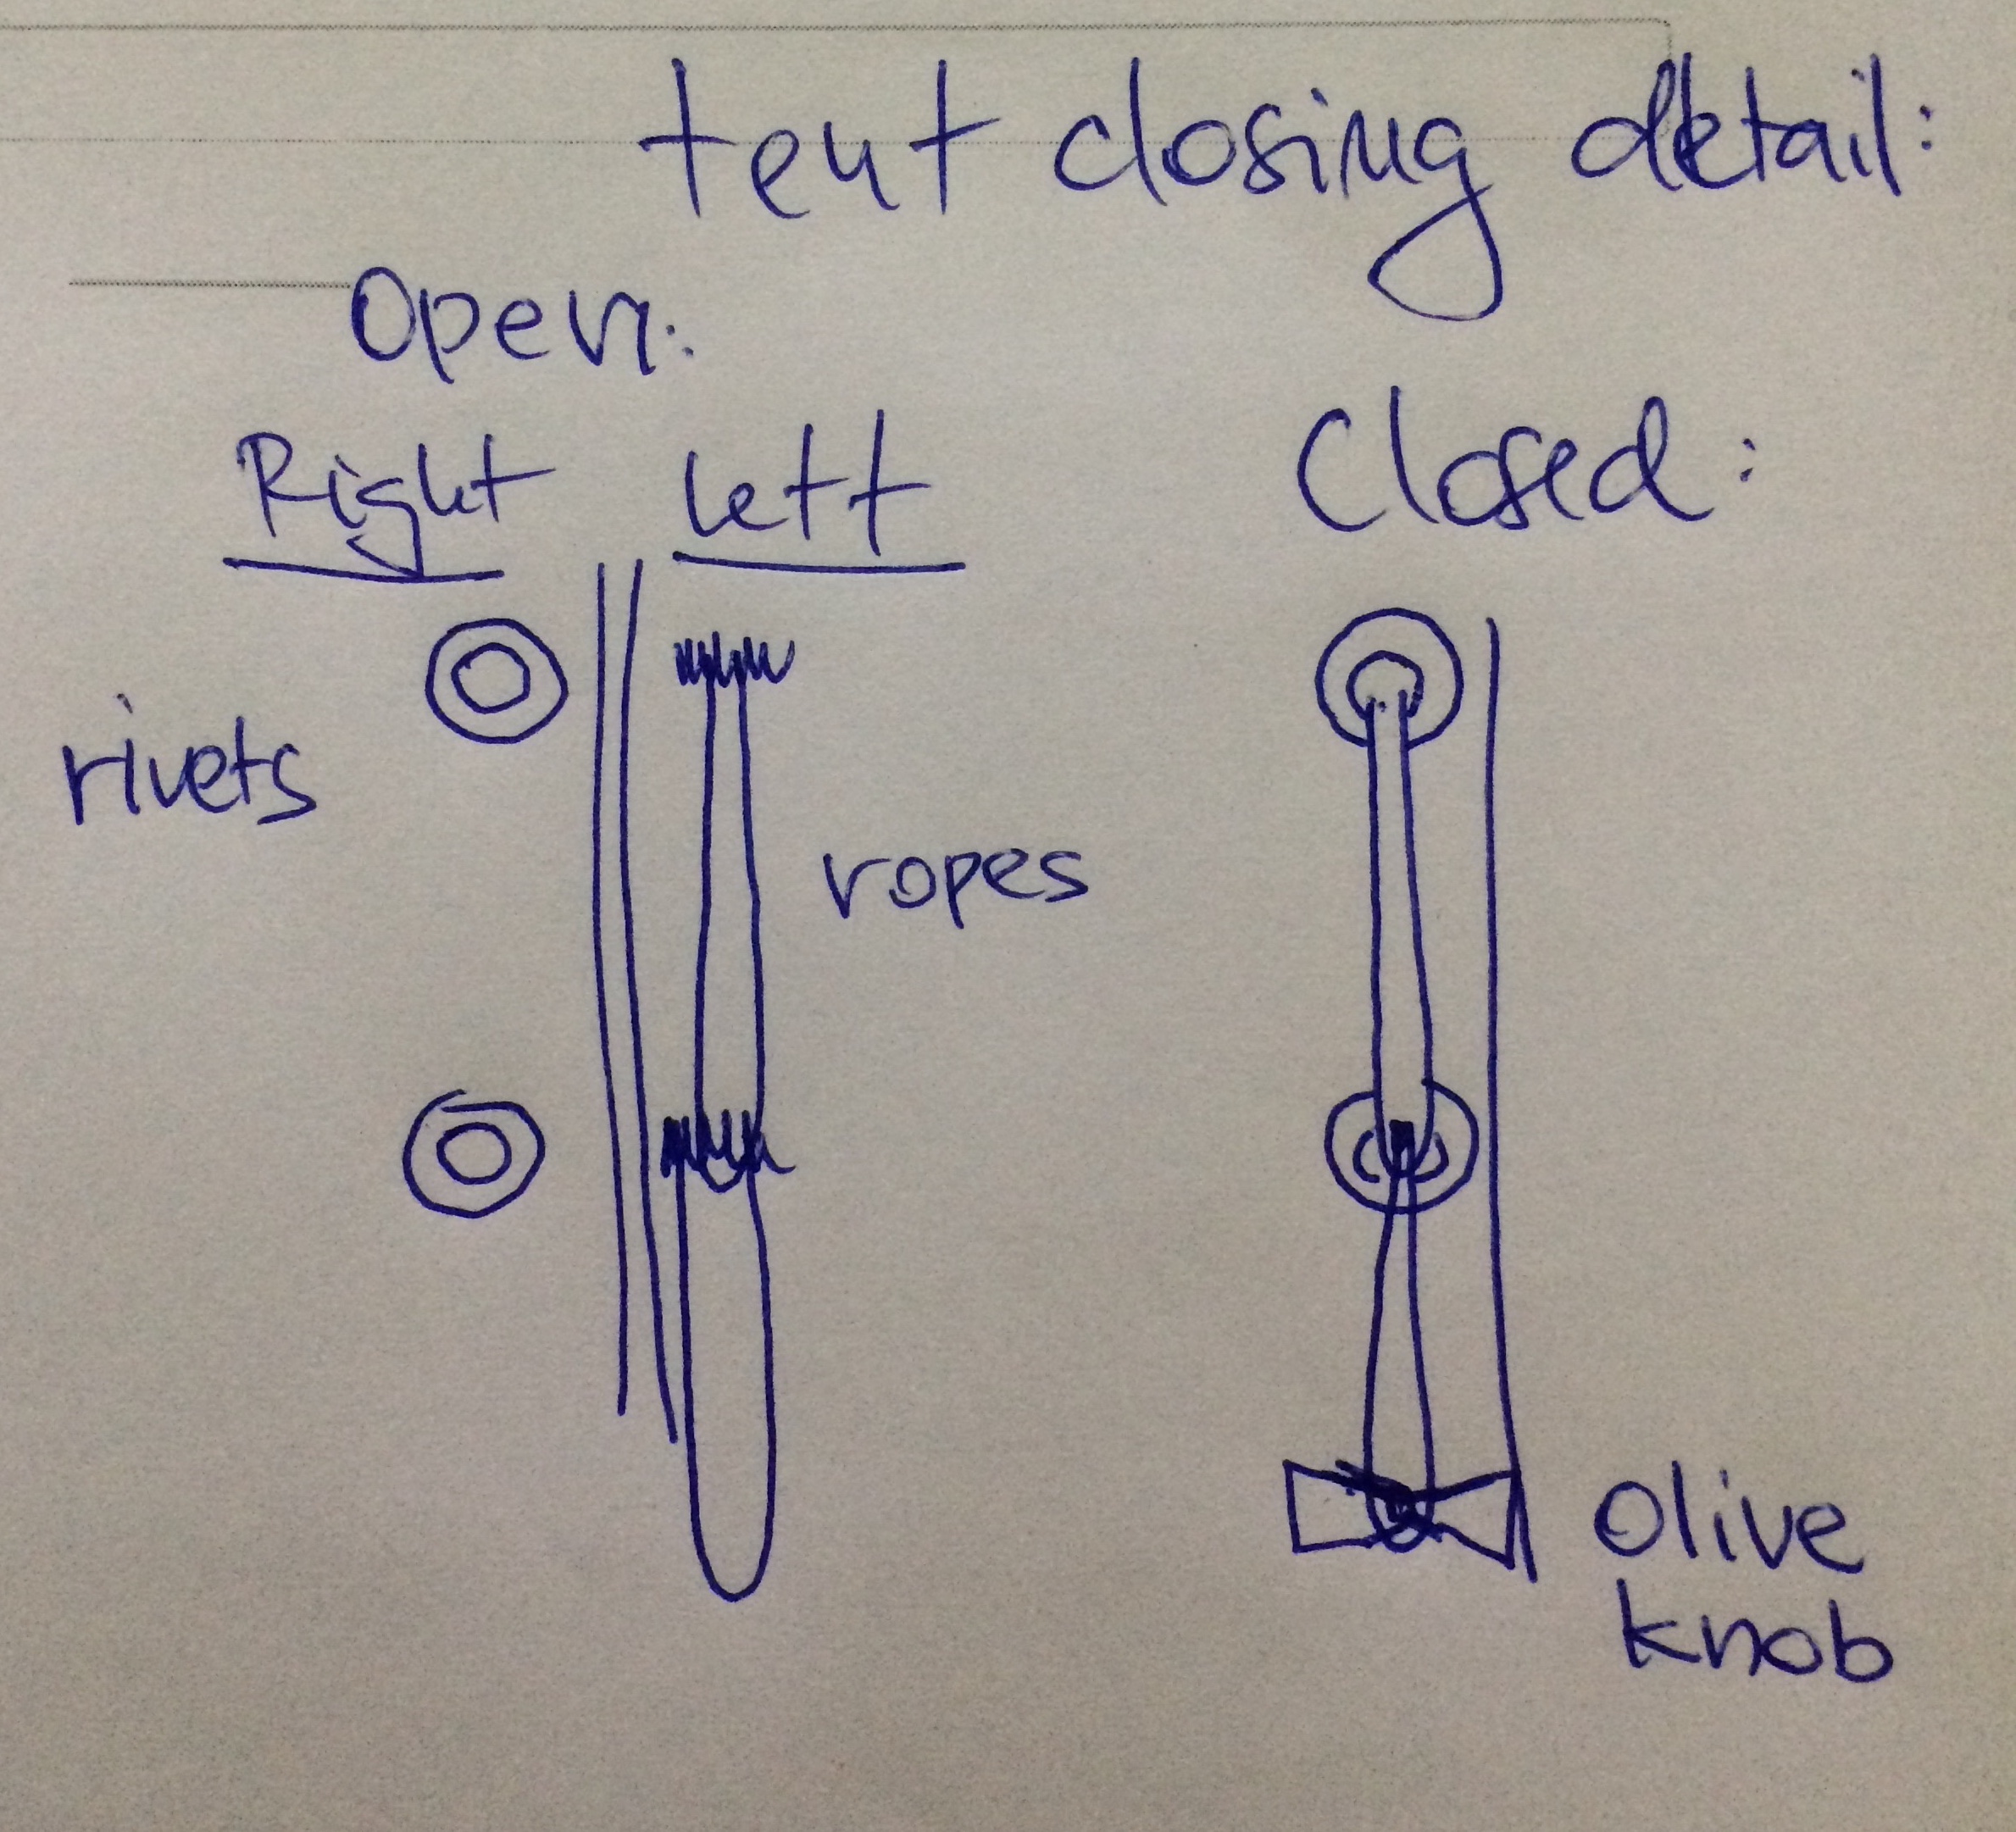 tent closing detail:
Open:
Right left
Closed:
rivets
ropes
olive
knob